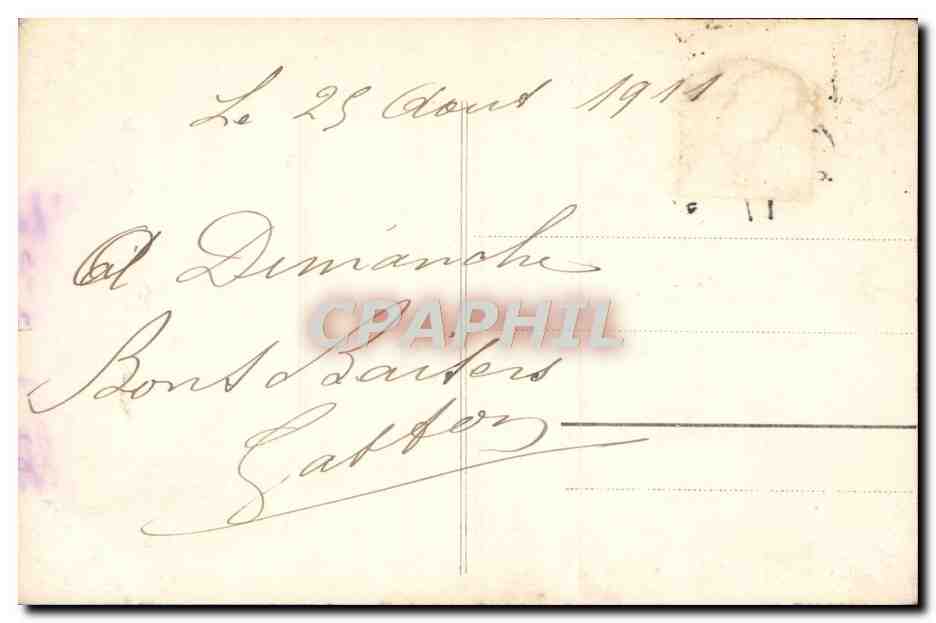 Le 25 Aout 1911
A Dimanche
CPAPHIL
Bons Baisers
Gaston